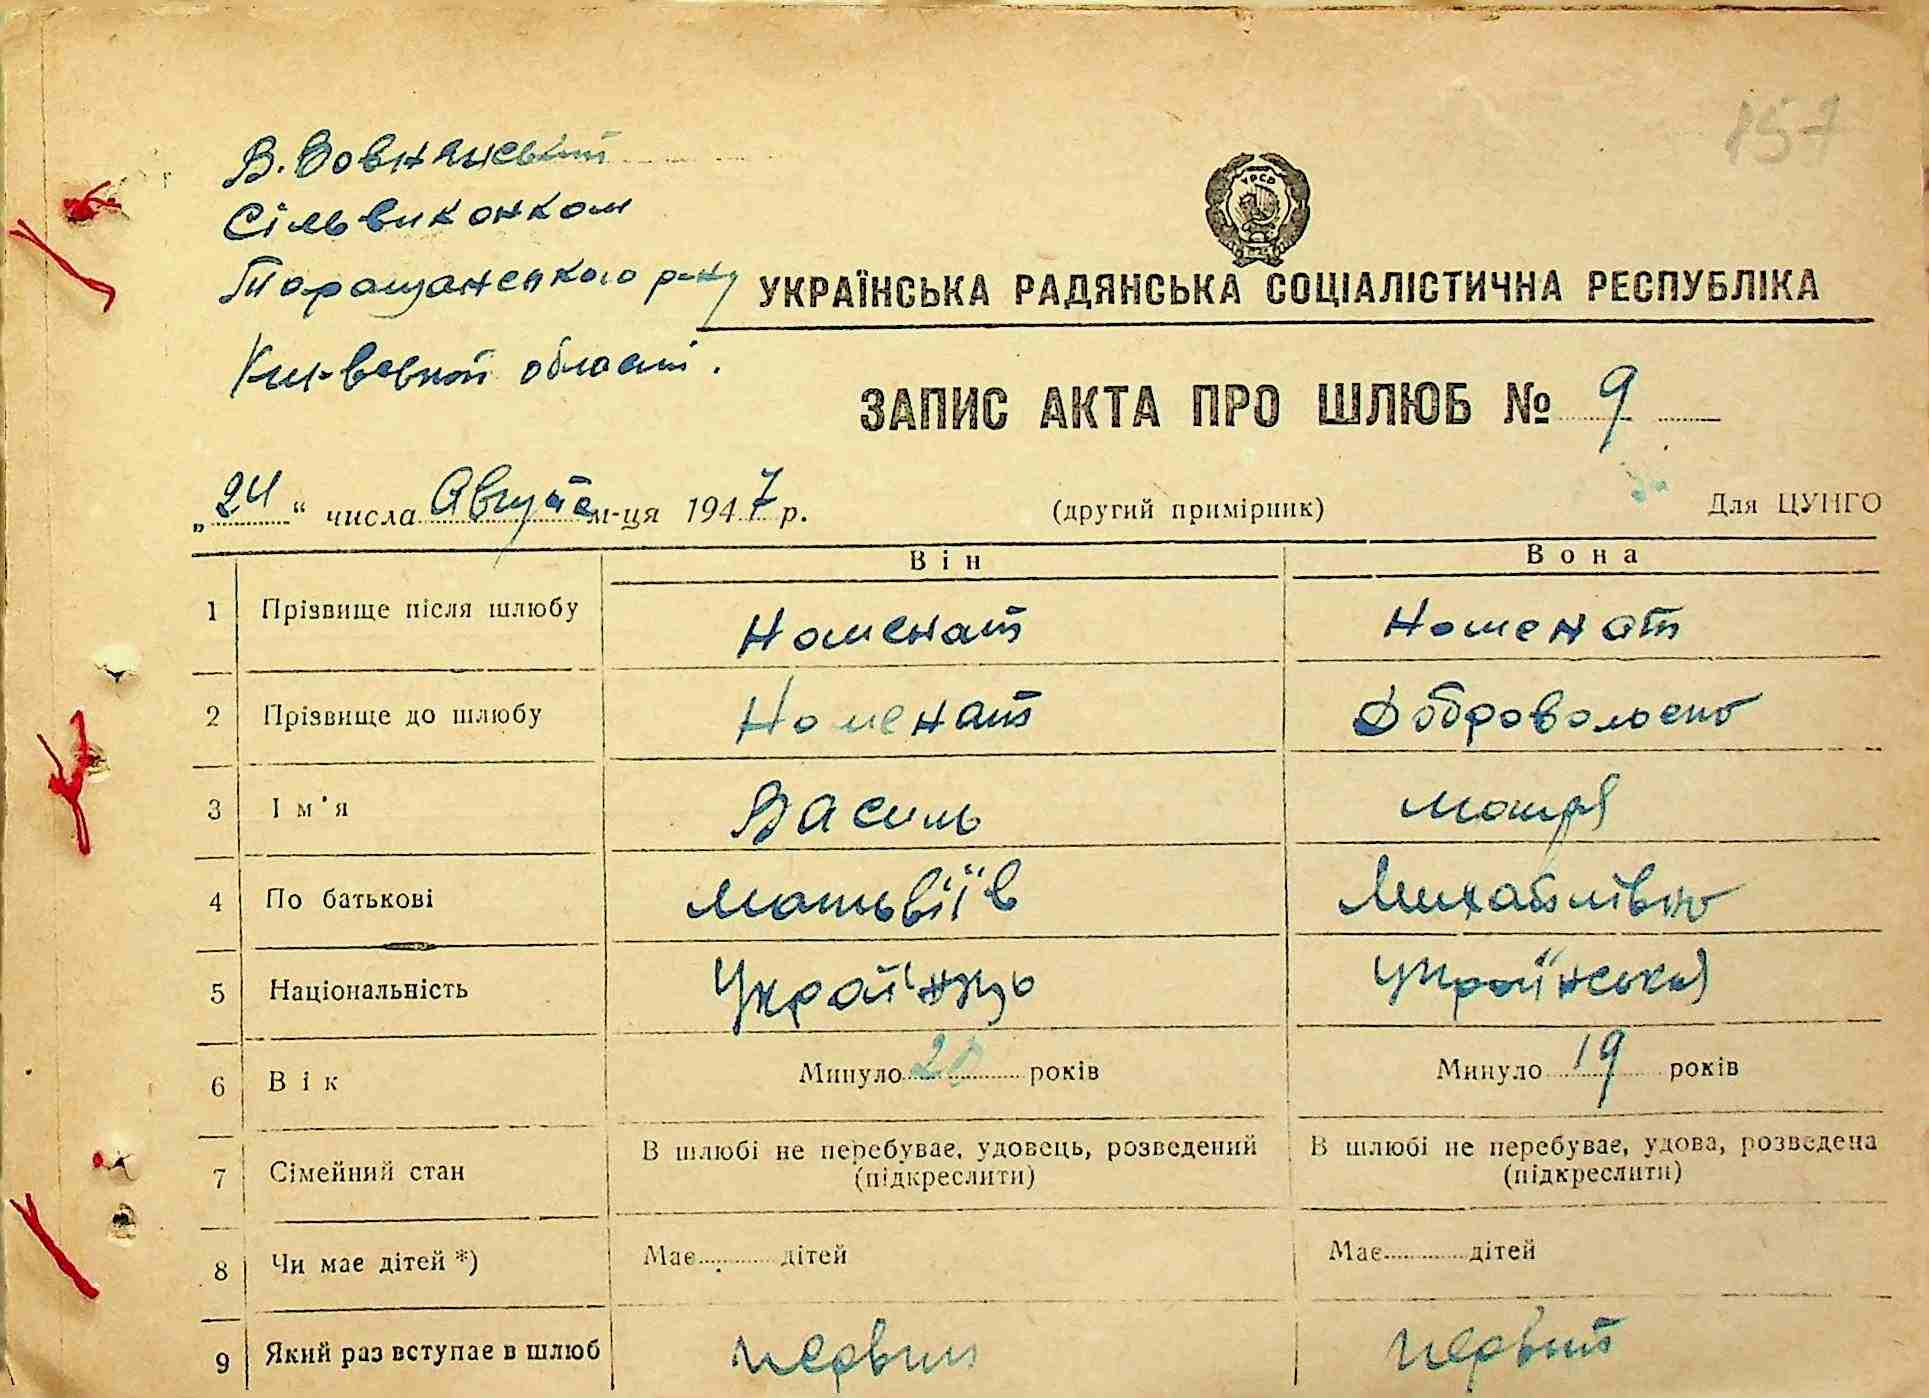 157
В. Вовнянський
Сільвиконком
Таращанського р-ну
УРСР
УКРАЇНСЬКА РАДЯНСЬКА СОЦІАЛІСТИЧНА РЕСПУБЛІКА
Киівської області.
ЗАПИС АКТА ПРО ШЛЮБ № 9
„24“ числа Августа м-ця 1947 р. (другий примірник) Для ЦУНГО
Він Вона
1 Прізвище після шлюбу Номенат Номенат
2 Прізвище до шлюбу Номенат Добровольско
3 Ім'я Василь Мотря
4 По батькові Матьвіїв Михайлівно
5 Національність Українць Українська
6 Вік Минуло 20 років Минуло 19 років
7 Сімейний стан В шлюбі не перебуває, удовець, розведений (підкреслити) В шлюбі не перебуває, удова, розведена (підкреслити)
8 Чи має дітей *) Має дітей Має дітей
9 Який раз вступає в шлюб первий первий